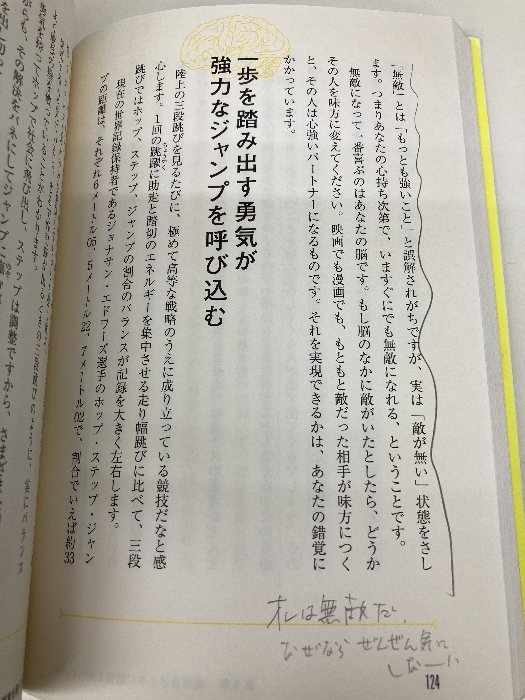 「無敵」とは「もっとも強いこと」と誤解されがちですが、実は「敵が無い」状態をさし
ます。つまりあなたの心持ち次第で、いますぐにでも無敵になれる、ということです。
無敵になって一番喜ぶのはあなたの脳です。もし脳のなかに敵がいたとしたら、どうか
その人を味方に変えてください。映画でも漫画でも、もともと敵だった相手が味方につく
と、その人は心強いパートナーになるものです。それを実現できるかは、あなたの錯覚に
かかっています。
一歩を踏み出す勇気が
強力なジャンプを呼び込む
陸上の三段跳びを見るたびに、極めて高等な戦略のうえに成り立っている競技だなと感
心します。1回の跳躍に助走と踏切のエネルギーを集中させる走り幅跳びに比べて、三段
ちょうやく
跳びではホップ、ステップ、ジャンプの割合のバランスが記録を大きく左右します。
現在の世界記録保持者であるジョナサン・エドワーズ選手のホップ・ステップ・ジャン
プの距離は、それぞれ6メートル05、5メートル22、7メートル02で、割合でいえば約33
オレは無敵だ。
なぜなら ぜんぜん気に
しなーい
124